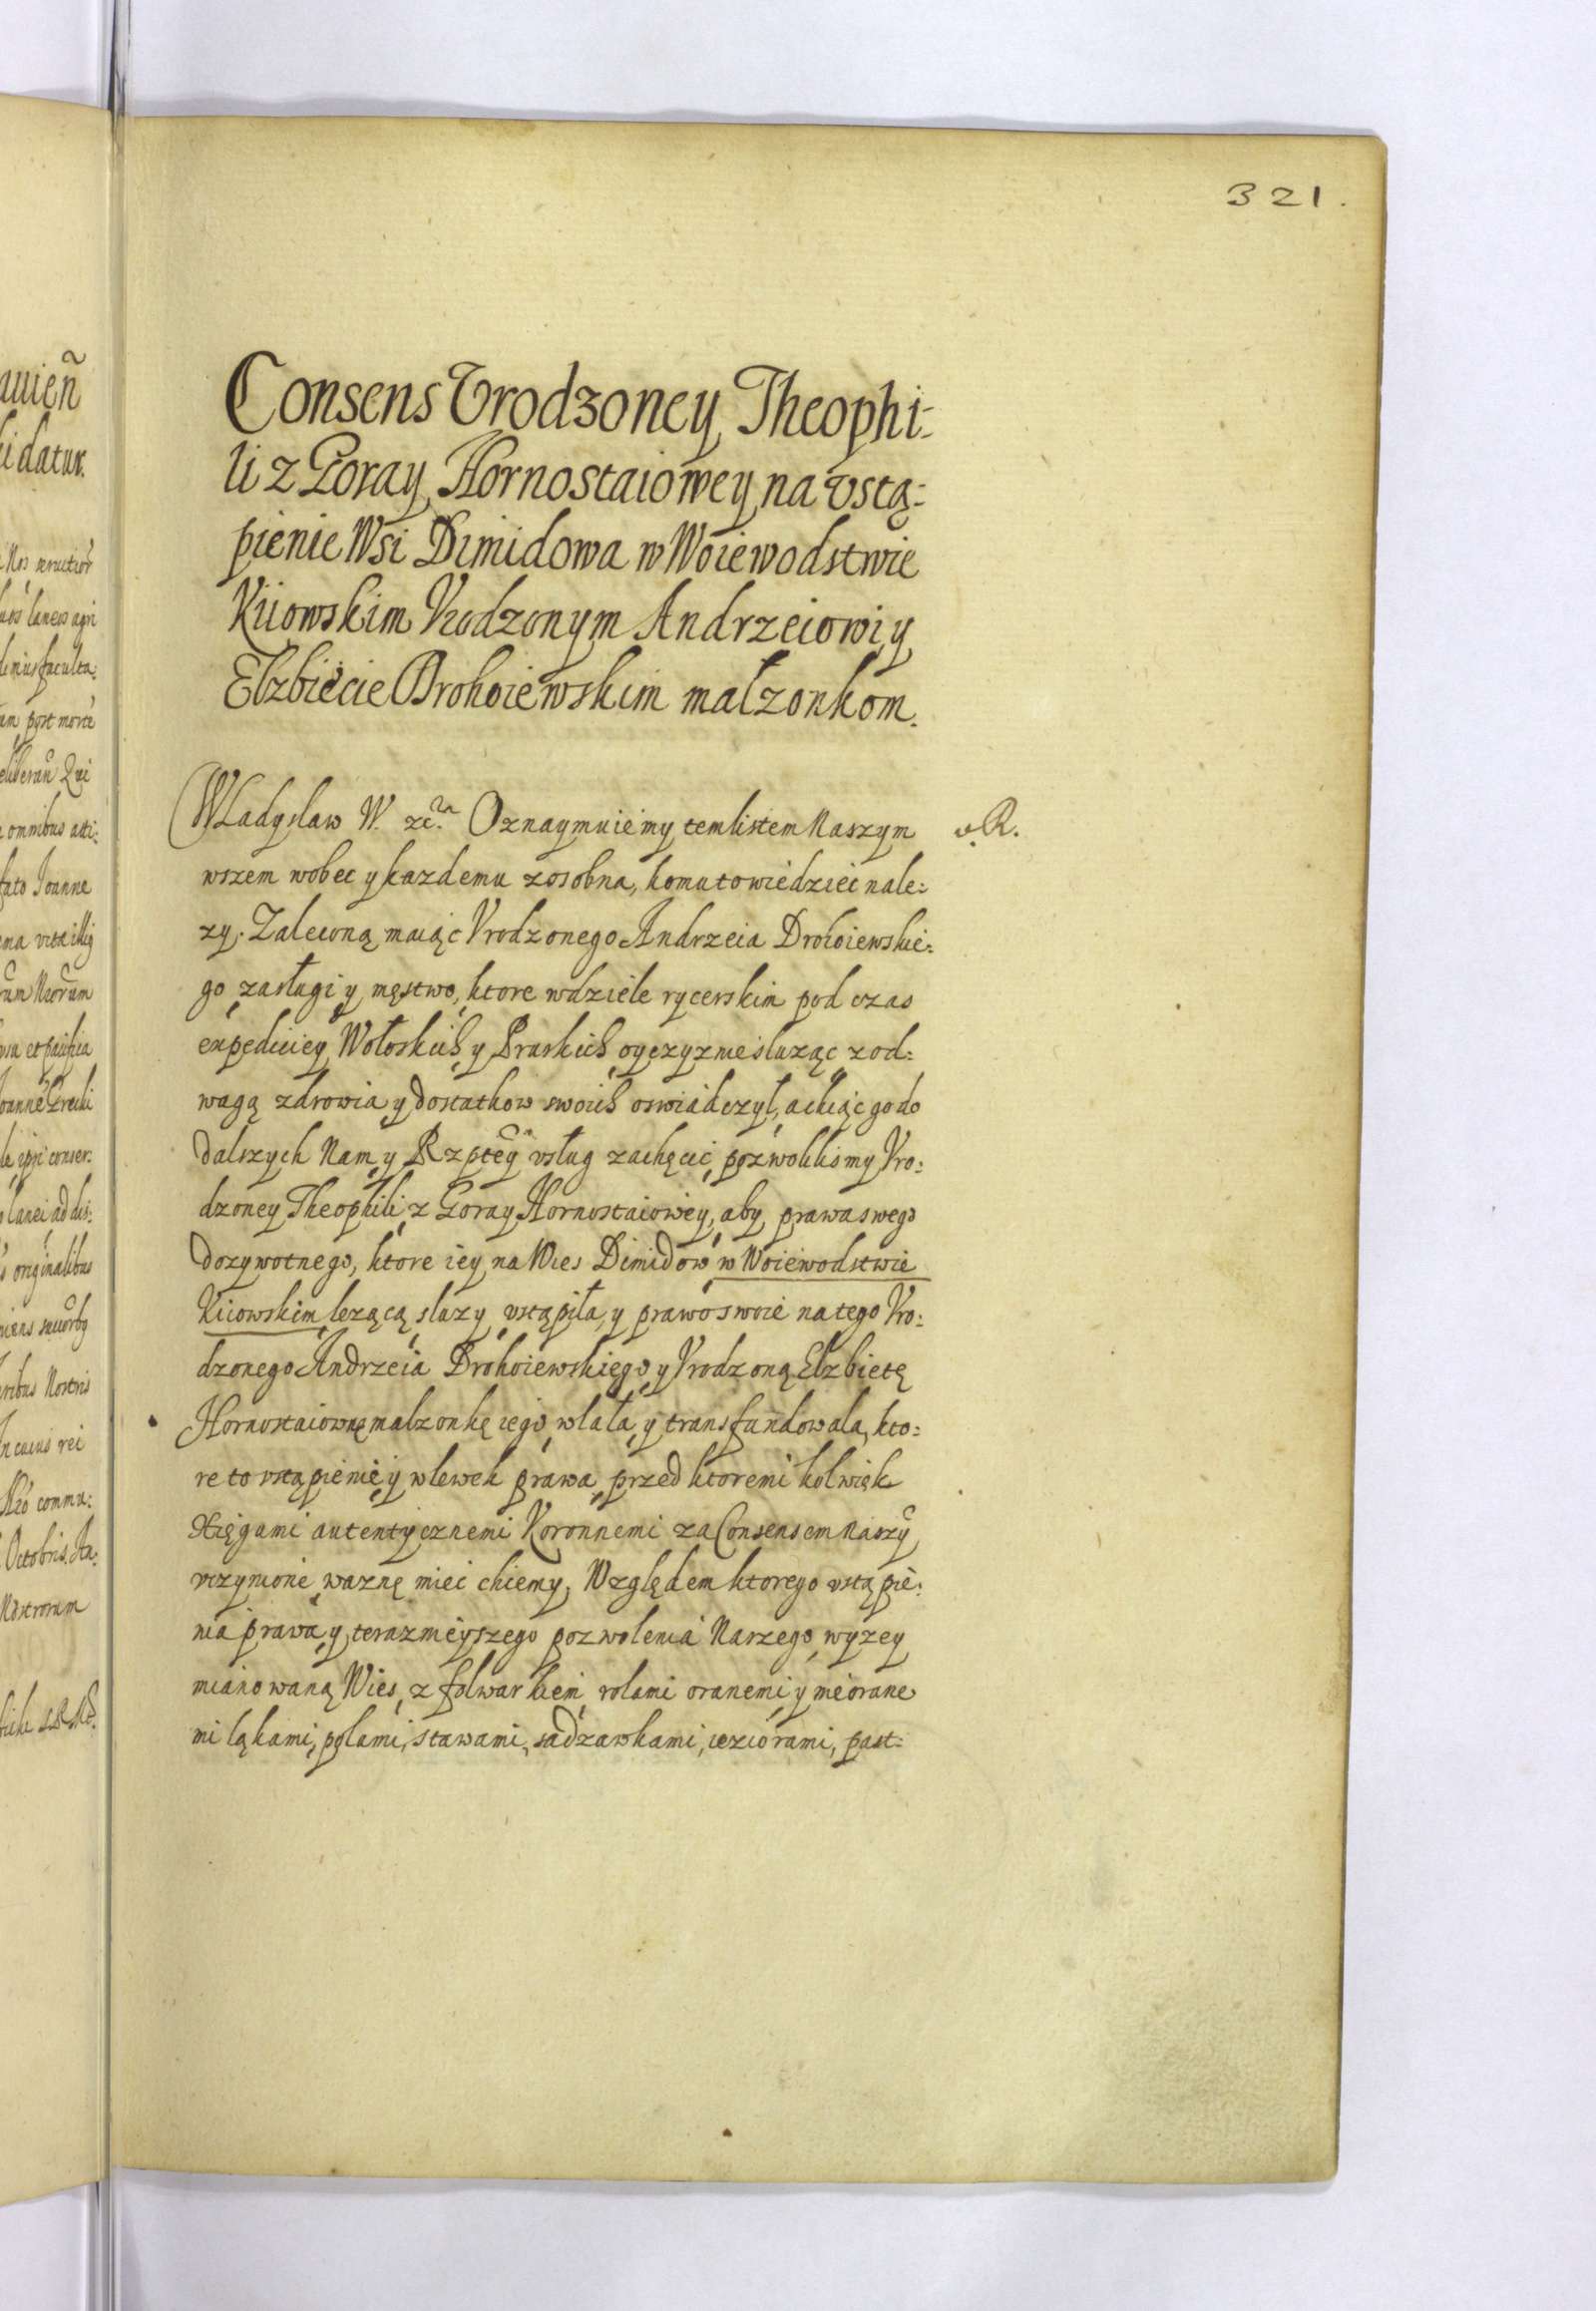 321.
Consens Vrodzoney Theophi-
li z Goray Hornostaiowey na vstą-
pienie Wsi Dimidowa w Woiewodstwie
Kiiowskim Vrodzonym Andrzeiowi y
Elzbiecie Drohoiewskim małzonkom.
Wladyslaw W. zc. Oznaymuiemy tem listem Naszym
R.
wszem wobec y kazdemu zosobna, komu to wiedziec nale:
zy. Zaleconą maiąc Vrodzonego Andrzeia Drohoiewskie:
go zasługi y męstwo, ktore w dziele rycerskim pod czas
expediciey Wołoskich y Pruskich oyczyznie sluząc z od:
wagą zdrowia y dostatkow swoich oswiadczył, a chcąc go do
dalszych Nam y Rzptey vsług zachęcic pozwolilismy Vro:
dzoney Theophili z Goray Hornostaiowey, aby prawa swego
dozywotnego, ktore iey na Wies Dimidow w Woiewodstwie
Kiiowskim lezącą sluzy vstąpiła, y prawo swoie na tego Vro:
dzonego Andrzeia Drohoiewskiego y Vrodzoną Elzbietę
Hornostaiownę malzonkę iego wlała y transfundowala, kto:
re to vstąpienie y wlewek prawa przed ktoremi kolwiek
Xięgami autentycznemi Koronnemi za Consensem Naszy
vczynione wazne miec chcemy. Względem ktorego vstąpie:
nia prawa y terazmieyszego pozwolenia Naszego wyzey
mianowaną Wies z folwarkiem rolami oranemi y nieorane
mi ląkami, polami, stawami, sadzawkami, ieziorami, past:
datur.
laneos agri
faculta:
post morte
Qui
omnibus
Joanne
conser:
originalibus
Nostris
In cuius rei
commu:
Octobris.
Nostrorum